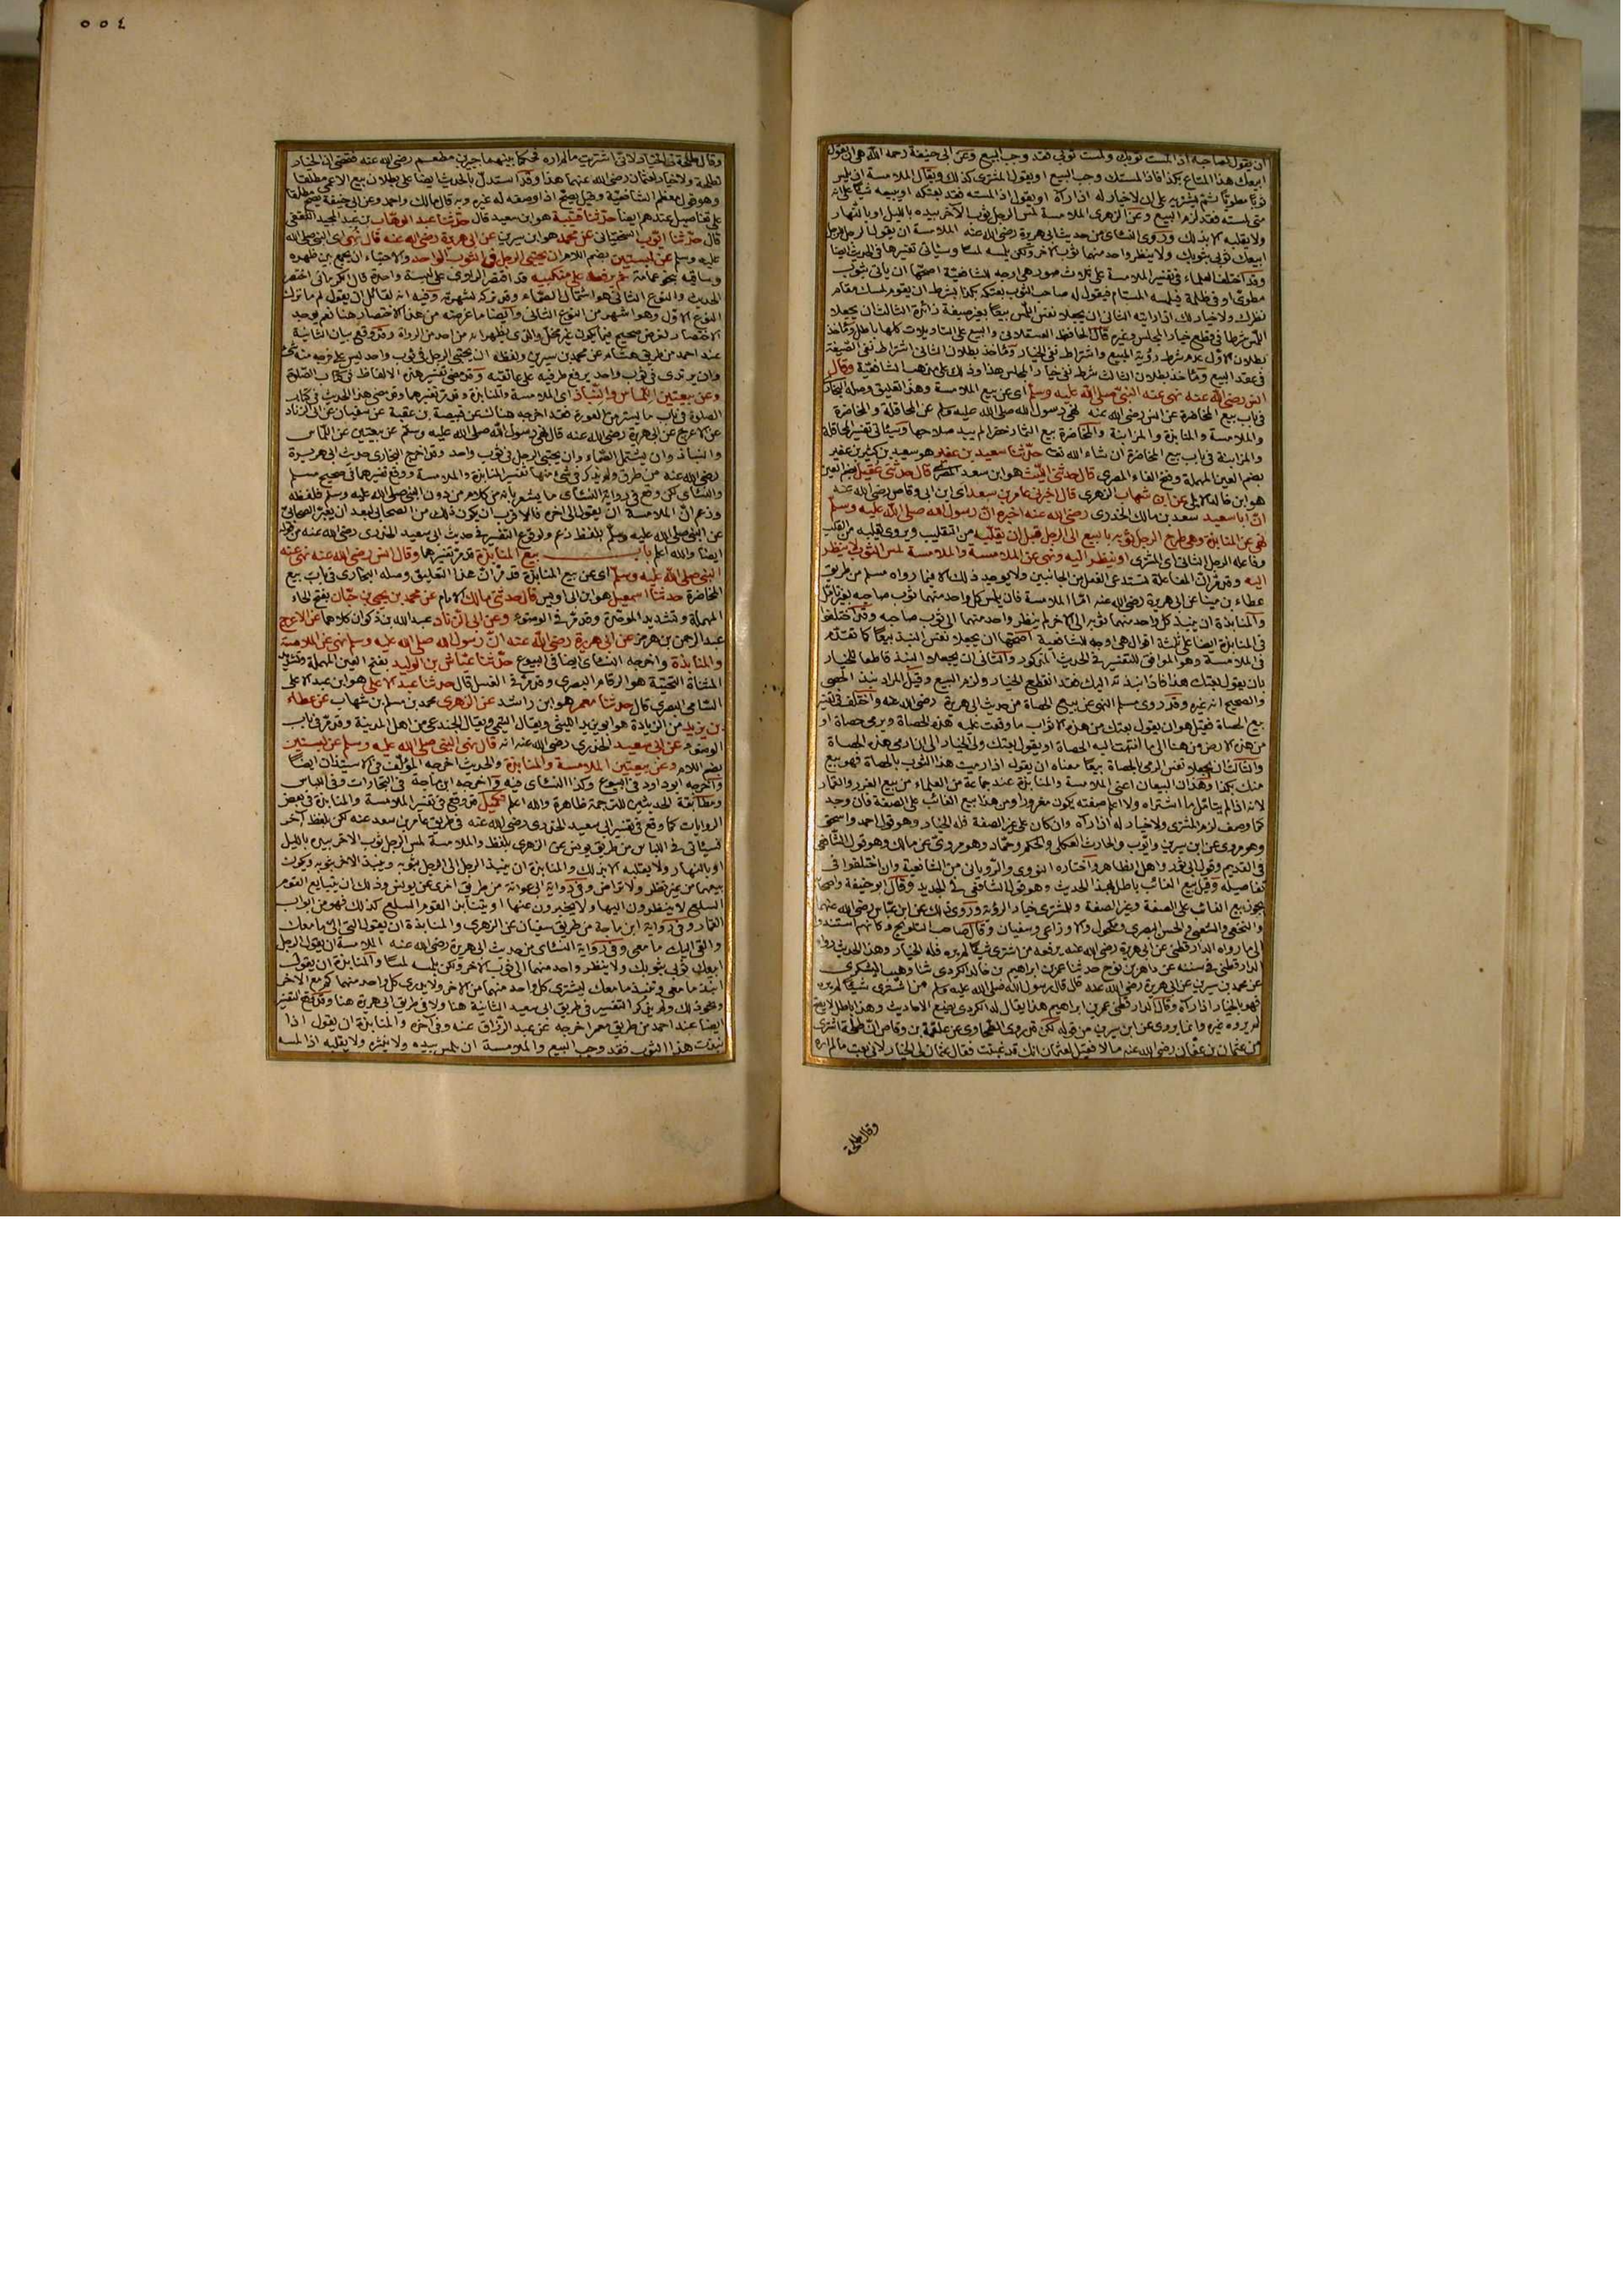 ان يقول لصاحبه اذا لمست ثوبك ولمست ثوبى فقد وجب البيع وعن ابى حنيفة رحمه الله هى ان يقول
ابيعك هذا المتاع بكذا فاذا لمستك وجب البيع او يقول المشترى كذلك ويقال الملامسة ان يلمس
ثوبا مطويا ثم يشتريه على ان لاخيار له اذا رآه او يقول اذا لمسته فقد بعتكه او يبيعه شيئا على انه
متى لمسته فقد لزم البيع وعن الزهرى الملامسة لمس الرجل ثوب الآخر بيده بالليل او بالنهار
ولا يقلبه الا بذلك وروى النسائى من حديث ابى هريرة رضى الله عنه الملامسة ان يقول الرجل للرجل
ابيعك ثوبى بثوبك ولا ينظر واحد منهما ثوب الآخر ولكن يلمسه لمسا وسيأتى تفسيرها فى الحديث ايضا
وقد اختلف العلماء فى تفسير الملامسة على ثلاث صور هى اوجه للشافعية اصحها ان يأتى بثوب
مطوى او فى ظلمة فيلمسه المستام فيقول له صاحب الثوب بعتكه بكذا بشرط ان يقوم لمسك مقام
نظرك ولا خيار لك اذا رايته الثانى ان يجعلا نفس اللمس بيعا بغير صيغة زائدة الثالث ان يجعلا
اللمس شرطا فى قطع خيار المجلس وغيره قال الحافظ العسقلانى والبيع على التاويلات كلها باطل ومأخذ
بطلان الاول عدم شرط رؤية المبيع واشتراط نفى الخيار ومأخذ بطلان الثانى اشتراط نفى الصيغة
فى عقد البيع ومأخذ بطلان الثالث شرط نفى خيار المجلس هذا وذلك على مذهب الشافعية وقال
انس رضى الله عنه نهى عنه النبى صلى الله عليه وسلم اى عن بيع الملامسة وهذا التعليق وصله البخارى
فى باب بيع المخاضرة عن انس رضى الله عنه نهى رسول الله صلى الله عليه وسلم عن المحاقلة والمخاضرة
والملامسة والمنابذة والمزابنة والمخاضرة بيع الثمار خضرا لم يبد صلاحها وسيأتى تفسير المحاقلة
والمزابنة فى باب بيع المخاضرة ان شاء الله تعا حدثنا سعيد بن عفير هو سعيد بن كثير بن عفير
بضم العين المهملة وفتح الفاء المصرى قال حدثنى الليث هو ابن سعد المصرى قال حدثنى عقيل بضم العين
هو ابن خالد الايلى عن ابن شهاب الزهرى قال اخبرنى عامر بن سعد اى ابن ابى وقاص رضى الله عنه
ان ابا سعيد سعد بن مالك الخدرى رضى الله عنه اخبره ان رسول الله صلى الله عليه وسلم
نهى عن المنابذة وهى طرح الرجل ثوبه بالبيع الى الرجل قبل ان يقلبه من التقليب ويروى يقلبه من القلب
وفاعله الرجل الثانى اى المشترى او ينظر اليه ونهى عن الملامسة والملامسة لمس الثوب لا ينظر
اليه وقد مر ان المفاعلة تستدعى الفعل من الجانبين ولا يوجد ذلك الا فيما رواه مسلم من طريق
عطاء بن مينا عن ابى هريرة رضى الله عنه اما الملامسة فان يلمس كل واحد منهما ثوب صاحبه بغير تأمل
والمنابذة ان ينبذ كل واحد منهما ثوبه الى الآخر لم ينظر واحد منهما الى ثوب صاحبه وقد اختلفوا
فى المنابذة ايضا على ثلثة اقوال هى وجه للشافعية اصحها ان يجعلا نفس النبذ بيعا كما تقدم
فى الملامسة وهو الموافق للتفسير فى الحديث المذكور والثانى ان يجعلا النبذ قاطعا للخيار
بان يقول بعتك هذا فاذا نبذته اليك فقد انقطع الخيار ولزم البيع وقيل المراد نبذ الحصى
والصحيح انه غيره وقد روى مسلم النهى عن بيع الحصاة من حديث ابى هريرة رضى الله عنه واختلف فى تفسير
بيع الحصاة فقيل هو ان يقول بعتك من هذه الاثواب ما وقعت عليه هذه الحصاة ويرمى حصاة او
من هذه الارض من هنا الى ما انتهت اليه الحصاة او يقول بعتك ولى الخيار الى ان ارمى هذه الحصاة
والثالث ان يجعلا نفس الرمى بالحصاة بيعا معناه ان يقول اذا رميت هذا الثوب بالحصاة فهو مبيع
منك بكذا وهذان البيعان اعنى الملامسة والمنابذة عند جماعة من العلماء من بيع الغرر والقمار
لانه اذا لم يتأمل ما اشتراه ولا اعلم صفته يكون مغرورا ومن هذا بيع الغائب على الصفة فان وجد
كما وصف لزم المشترى ولا خيار له اذا رآه وان كان على غير الصفة فله الخيار وهو قول احمد واسحق
وهو مروى عن ابن سيرين وايوب والحارث العكلى والحكم وحماد وهو مروى عن مالك وهو قول الشافعى
فى القديم وقول ابى ثور واهل الظاهر واختاره النووى والرويانى من الشافعية وان اختلفوا فى
تفاصيله وقيل بيع الغائب باطل لهذا الحديث وهو قول الشافعى فى الجديد وقال ابو حنيفة واصحابه
يجوز بيع الغائب على الصفة وغير الصفة وللمشترى خيار الرؤية وروى ذلك عن ابن عباس رضى الله عنهما
والنخعى والشعبى والحسن البصرى ومكحول والاوزاعى وسفيان وقال صاحب التلويح وكانهم استندوا
الى ما رواه الدارقطنى عن ابى هريرة رضى الله عنه يرفعه من اشترى شيئا لم يره فله الخيار وهذا الحديث رواه
الدارقطنى فى سننه عن داهر بن نوح حدثنا عمر بن ابراهيم بن خالد الكردى ثنا وهيب اليشكرى
عن محمد بن سيرين عن ابى هريرة رضى الله عنه قال قال رسول الله صلى الله عليه وسلم من اشترى شيئا لم يره
فهو بالخيار اذا رآه وقال الدارقطنى عمر بن ابراهيم هذا يقال له الكردى يضع الاحاديث وهذا باطل لا يصح
لم يروه غيره وانما يروى عن ابن سيرين من قوله لكن قد روى الطحاوى عن علقمة بن وقاص ان طلحة اشترى
من عثمان بن عفان رضى الله عنه مالا فقيل لعثمان انك قد غبنت فقال عثمان لى الخيار لانى بعت ما لم اره
وقال طلحة
٥٥٤
وقال طلحة لى الخيار لانى اشتريت ما لم اره فحكما بينهما جبير بن مطعم رضى الله عنه فقضى ان الخيار
لطلحة ولا خيار لعثمان رضى الله عنهما هذا وقد استدل بالحديث ايضا على بطلان بيع الاعمى مطلقا
وهو قول معظم الشافعية وقيل يصح اذا وصفه له غيره وبه قال مالك واحمد وعن ابى حنيفة يصح مطلقا
على تفاصيل عندهم ايضا حدثنا قتيبة هو ابن سعيد قال حدثنا عبد الوهاب بن عبد المجيد الثقفى
قال حدثنا ايوب السختيانى عن محمد هو ابن سيرين عن ابى هريرة رضى الله عنه قال نهى اى النبى صلى الله
عليه وسلم عن لبستين بضم اللام ان يحتبى الرجل فى الثوب الواحد والاحتباء ان يجمع بين ظهره
وساقيه بنحو عمامة ثم يرفعه على منكبيه قد اقتصر الراوى على لبسة واحدة قال الكرمانى اختصر
الحديث والنوع الثانى هو اشتمال الصماء وقد تركه لشهرته وفيه انه لقائل ان يقول لم ما ترك
النوع الاول وهو اشهر من النوع الثانى وايضا ما غرضه من هذا الاختصار هنا نعم يوجد
الاختصار لغرض صحيح فيما يكون غير مخل والذى يظهر انه من احد من الرواة وقد وقع بيان الثانية
عند احمد من طريق هشام عن محمد بن سيرين ولفظه ان يحتبى الرجل فى ثوب واحد ليس على فرجه منه شئ
وان يرتدى فى ثوب واحد يرفع طرفيه على عاتقيه وقد مضى تفسير هذه الالفاظ فى كتاب الصلوة
وعن بيعتين اللماس والنباذ اى الملامسة والمنابذة وقد مر تفسيرهما وقد مضى هذا الحديث فى كتاب
الصلوة فى باب ما يستر من العورة فقد اخرجه هناك عن قبيصة بن عقبة عن سفيان عن ابى الزناد
عن الاعرج عن ابى هريرة رضى الله عنه قال نهى رسول الله صلى الله عليه وسلم عن بيعتين عن اللماس
والنباذ وان يشتمل الصماء وان يحتبى الرجل فى ثوب واحد وقد اخرج البخارى حديث ابى هريرة
رضى الله عنه من طرق ولم يذكر فى شئ منها تفسير المنابذة والملامسة ووقع تفسيرهما فى صحيح مسلم
والنسائى لكن وقع فى رواية النسائى ما يشعر بانه من كلام من دون النبى صلى الله عليه وسلم فلفظه
وزعم ان الملامسة ان يقول الى آخره فالاقرب ان يكون ذلك من الصحابى لبعد ان يعبر الصحابى
عن النبى صلى الله عليه وسلم بلفظ زعم ولوقوع التفسير فى حديث ابى سعيد الخدرى رضى الله عنه من قوله
ايضا والله اعلم باب بيع المنابذة قد مر تفسيرها وقال انس رضى الله عنه نهى عنه
النبى صلى الله عليه وسلم اى عن بيع المنابذة قد مر ان هذا التعليق وصله البخارى فى باب بيع
المخاضرة حدثنا اسمعيل هو ابن ابى اويس قال حدثنى مالك الامام عن محمد بن يحيى بن حبان بفتح الحاء
المهملة وتشديد الموحدة وقد مر فى الوضوء وعن ابى الزناد عبد الله بن ذكوان كلاهما عن الاعرج
عبد الرحمن بن هرمز عن ابى هريرة رضى الله عنه ان رسول الله صلى الله عليه وسلم نهى عن الملامسة
والمنابذة واخرجه النسائى ايضا فى البيوع حدثنا عياش بن الوليد بفتح العين المهملة وتشديد
المثناة التحتية هو الرقام البصرى وقد مر فى الغسل قال حدثنا عبد الاعلى هو ابن عبد الاعلى
السامى البصرى قال حدثنا معمر هو ابن راشد عن الزهرى محمد بن مسلم بن شهاب عن عطاء
بن يزيد من الزيادة هو ابو يزيد الليثى ويقال التيمى ويقال الجندعى من اهل المدينة وقد مر فى باب
الوضوء عن ابى سعيد الخدرى رضى الله عنه انه قال نهى النبى صلى الله عليه وسلم عن لبستين
بضم اللام وعن بيعتين الملامسة والمنابذة والحديث اخرجه المؤلف فى الاستيذان ايضا
واخرجه ابو داود فى البيوع وكذا النسائى فيه واخرجه ابن ماجة فى التجارات وفى اللباس
ومطابقة الحديثين للترجمة ظاهرة والله اعلم تكميل قد وقع فى تفسير الملامسة والمنابذة فى بعض
الروايات كما وقع فى تفسير ابى سعيد الخدرى رضى الله عنه فى طريق عامر بن سعد عنه لكن بلفظ آخر
فسيأتى فى اللباس من طريق يونس عن الزهرى بلفظ والملامسة لمس الرجل ثوب الآخر بيده بالليل
او بالنهار ولا يقلبه الا بذلك والمنابذة ان ينبذ الرجل الى الرجل بثوبه وينبذ الآخر بثوبه ويكون
بيعهما من غير نظر ولا تراض وفى رواية ابى عوانة من طريق اخرى عن يونس وذلك ان يتبايع القوم
السلع لا ينظرون اليها ولا يخبرون عنها او يتنابذ القوم السلع كذلك فهو من ابواب
القمار وفى رواية ابن ماجة من طريق سفيان عن الزهرى والمنابذة ان يقول الق الى ما معك
والقى اليك ما معى وفى رواية النسائى من حديث ابى هريرة رضى الله عنه الملامسة ان يقول الرجل
ابيعك ثوبى بثوبك ولا ينظر واحد منهما الى ثوب الآخر ولكن يلمسه لمسا والمنابذة ان يقول
انبذ ما معى وتنبذ ما معك يشترى كل واحد منهما من الآخر ولا يدرى كل واحد منهما كم مع الآخر
ونحو ذلك ولم يذكر التفسير فى طريق ابى سعيد الثانية هنا ولا فى طريق ابى هريرة هنا وقد وقع التفسير
ايضا عند احمد من طريق معمر اخرجه عن عبد الرزاق عنه وفى آخره والمنابذة ان يقول اذا
نبذت هذا الثوب فقد وجب البيع والملامسة ان يلمس بيده ولا ينشره ولا يقلبه اذا لمسه